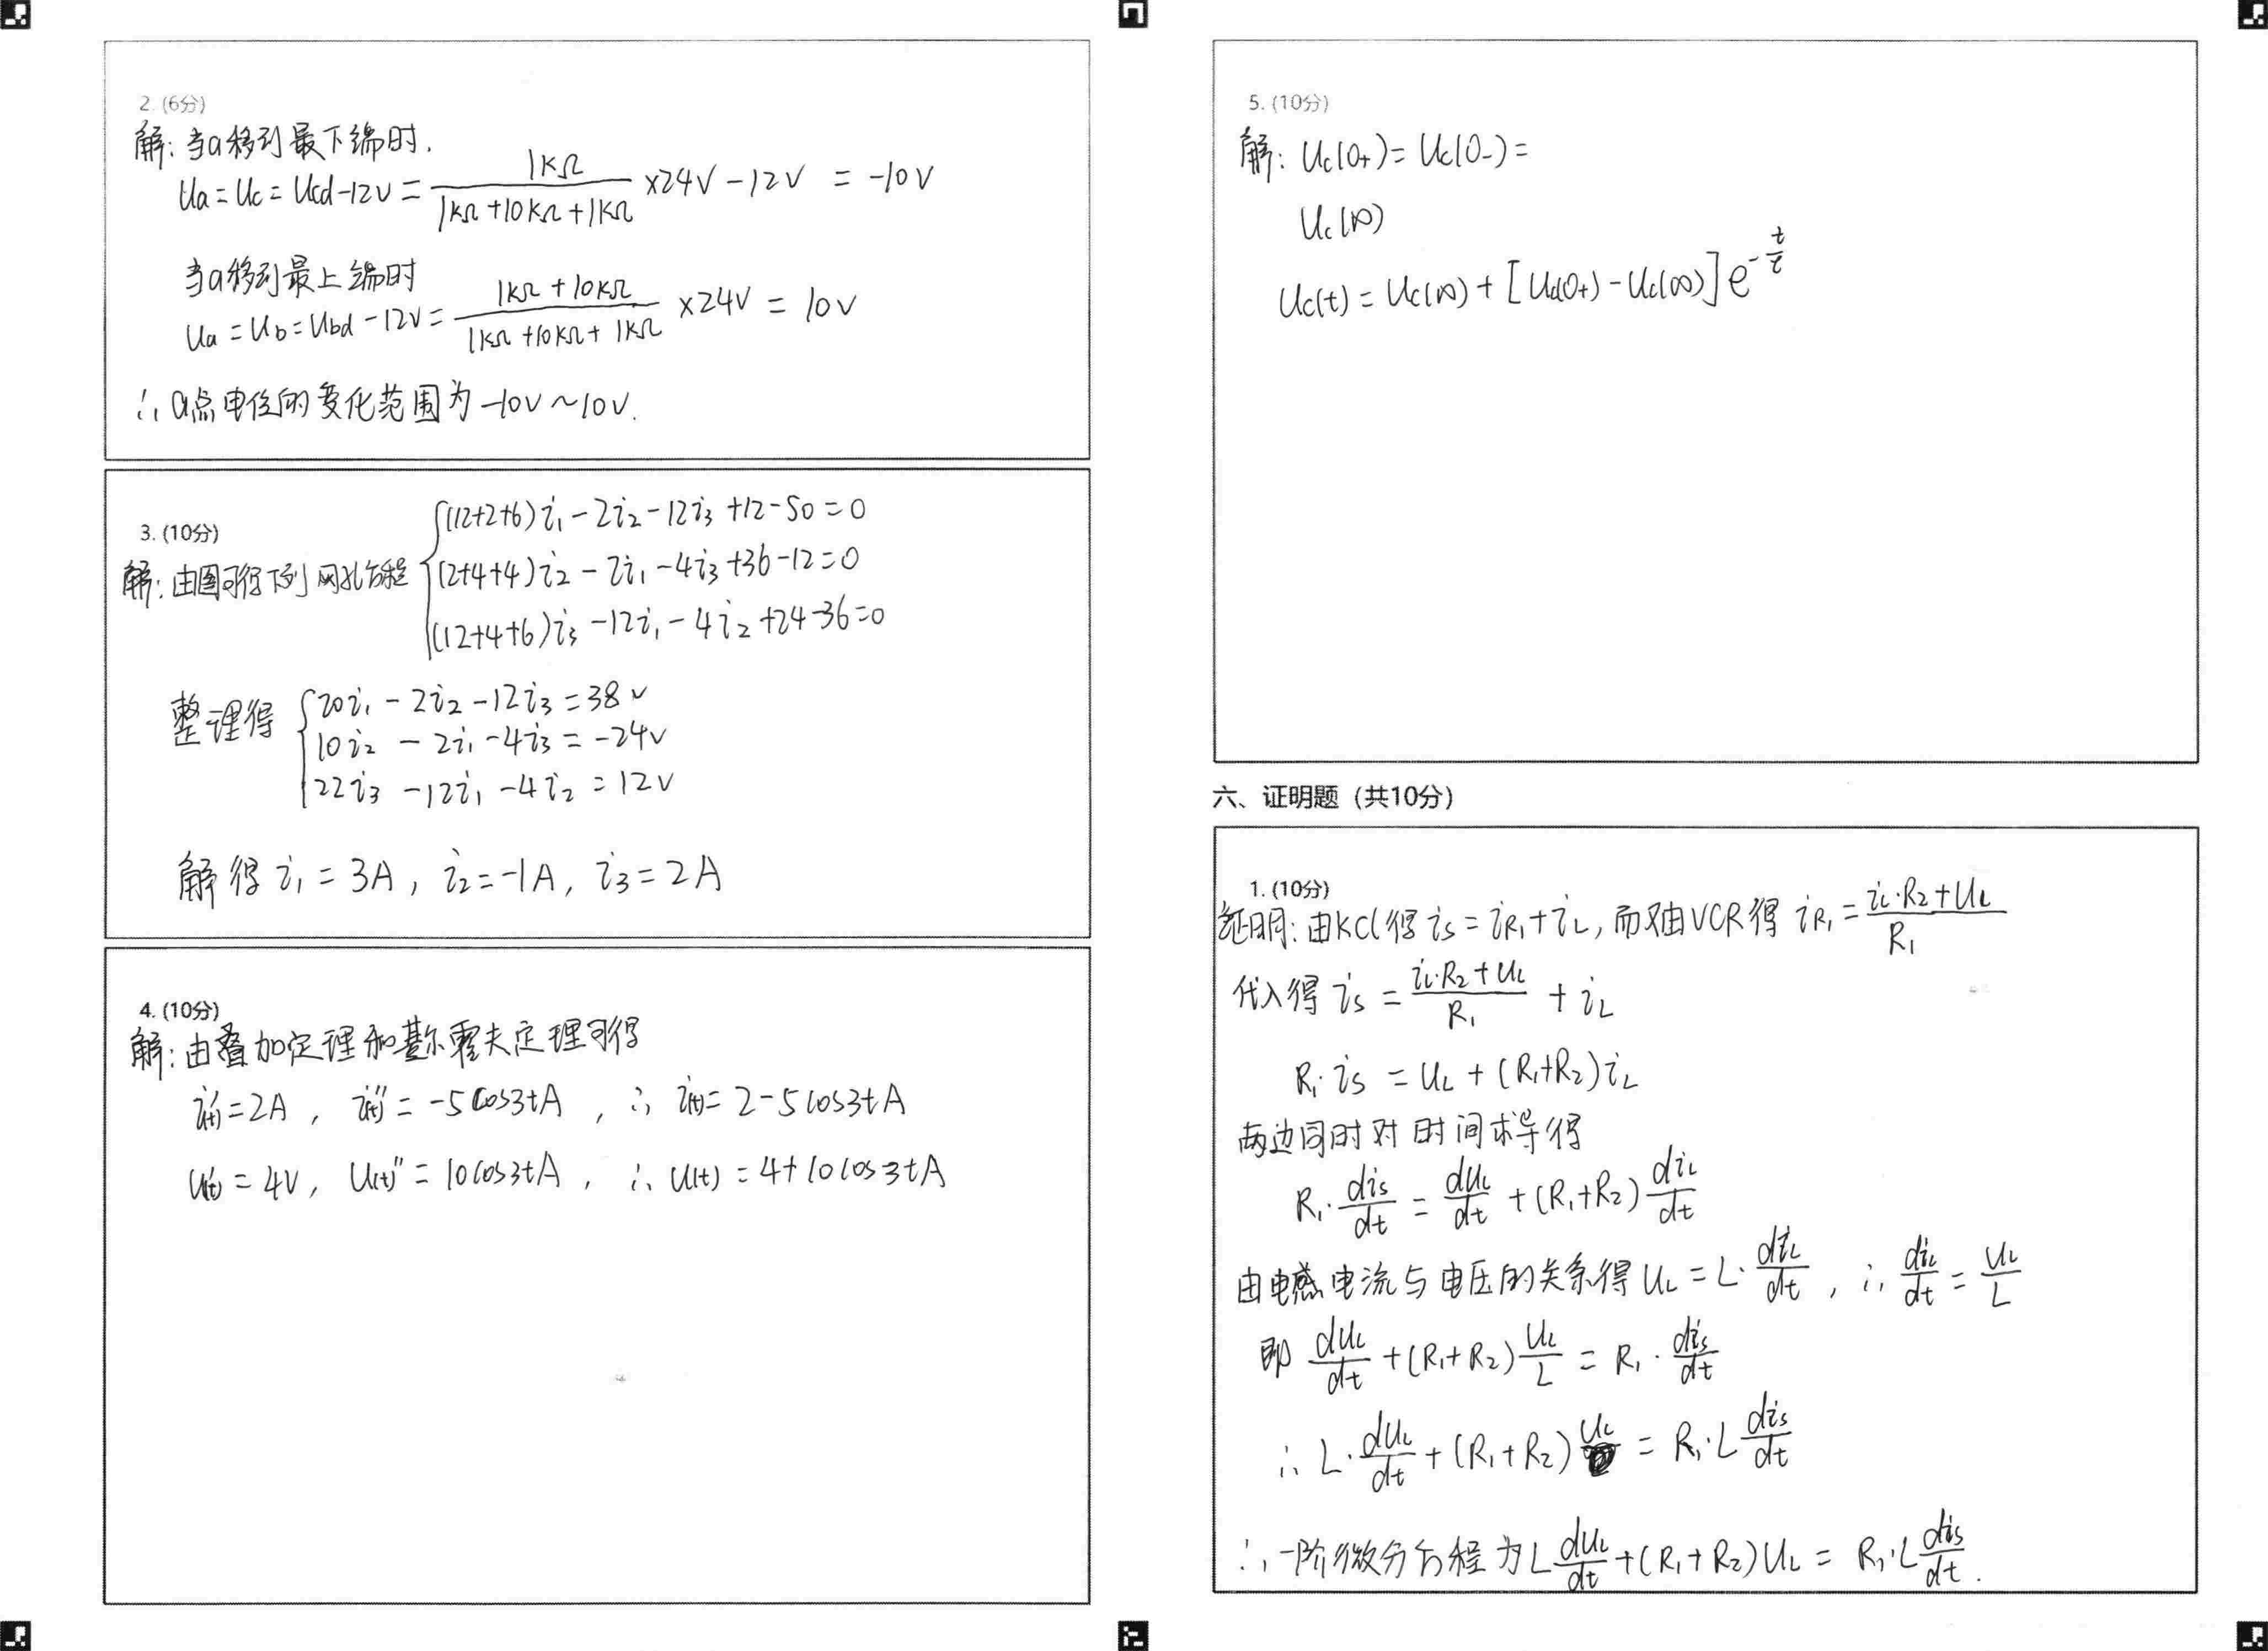 2. (6分)
解: 当a移到最下端时.
Ua = Uc = Ucd-12V = 1KΩ / (1KΩ+10KΩ+1KΩ) ×24V-12V = -10V
当a移到最上端时
Ua = Ub = Ubd-12V = (1KΩ+10KΩ) / (1KΩ+10KΩ+1KΩ) ×24V = 10V
∴ a点电位的变化范围为-10V~10V.
3. (10分)
解: 由图可得下列网孔方程
(12+2+6)i₁-2i₂-12i₃+12-50=0
(2+4+4)i₂-2i₁-4i₃+36-12=0
(12+4+6)i₃-12i₁-4i₂+24-36=0
整理得
20i₁-2i₂-12i₃=38V
10i₂-2i₁-4i₃=-24V
22i₃-12i₁-4i₂=12V
解得 i₁=3A, i₂=-1A, i₃=2A
4. (10分)
解: 由叠加定理和基尔霍夫定理可得
i(t)'=2A, i(t)''=-5cos3tA, ∴ i(t)=2-5cos3tA
U(t)'=4V, U(t)''=10cos3tA, ∴ U(t)=4+10cos3tA
5. (10分)
解: Uc(0₊)=Uc(0₋)=
Uc(∞)
Uc(t)=Uc(∞)+[Uc(0₊)-Uc(∞)]e^(-t/τ)
六、证明题(共10分)
1. (10分)
证明: 由KCL得 is=iR₁+iL, 而又由VCR得 iR₁=(iL·R₂+UL)/R₁
代入得 is=(iL·R₂+UL)/R₁+iL
R₁·is=UL+(R₁+R₂)iL
两边同时对时间求导得
R₁·dis/dt=dUL/dt+(R₁+R₂)diL/dt
由电感电流与电压的关系得 UL=L·diL/dt, ∴ diL/dt=UL/L
即 dUL/dt+(R₁+R₂)UL/L=R₁·dis/dt
∴ L·dUL/dt+(R₁+R₂)UL=R₁·L dis/dt
∴ 一阶微分方程为 L dUL/dt+(R₁+R₂)UL=R₁·L dis/dt.